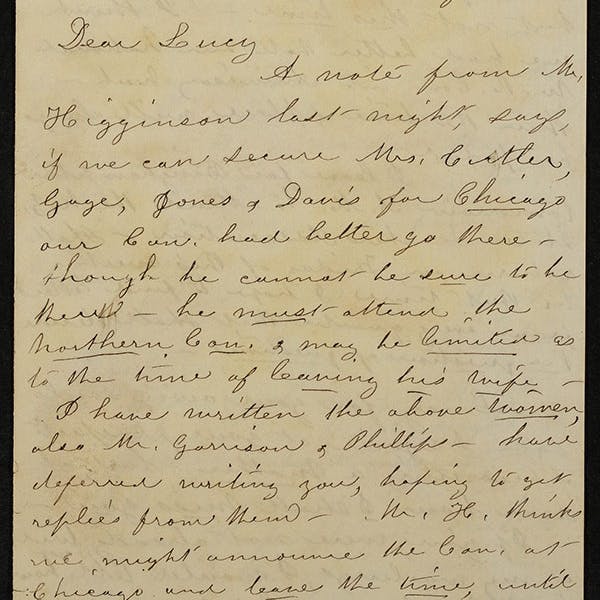 Dear Lucy
A note from Mr.
Higginson last night, says,
if we can secure Mrs. Cutler,
Gage, Jones & Davis for Chicago
our Con. had better go there -
though he cannot be sure to be
there - he must attend the
Northern Con. & may be limited as
to the time of leaving his wife -
I have written the above women,
also Mr. Garrison & Phillips - have
deferred writing you, hoping to get
replies from them - Mr. H. thinks
we might announce the Con. at
Chicago and leave the time, until